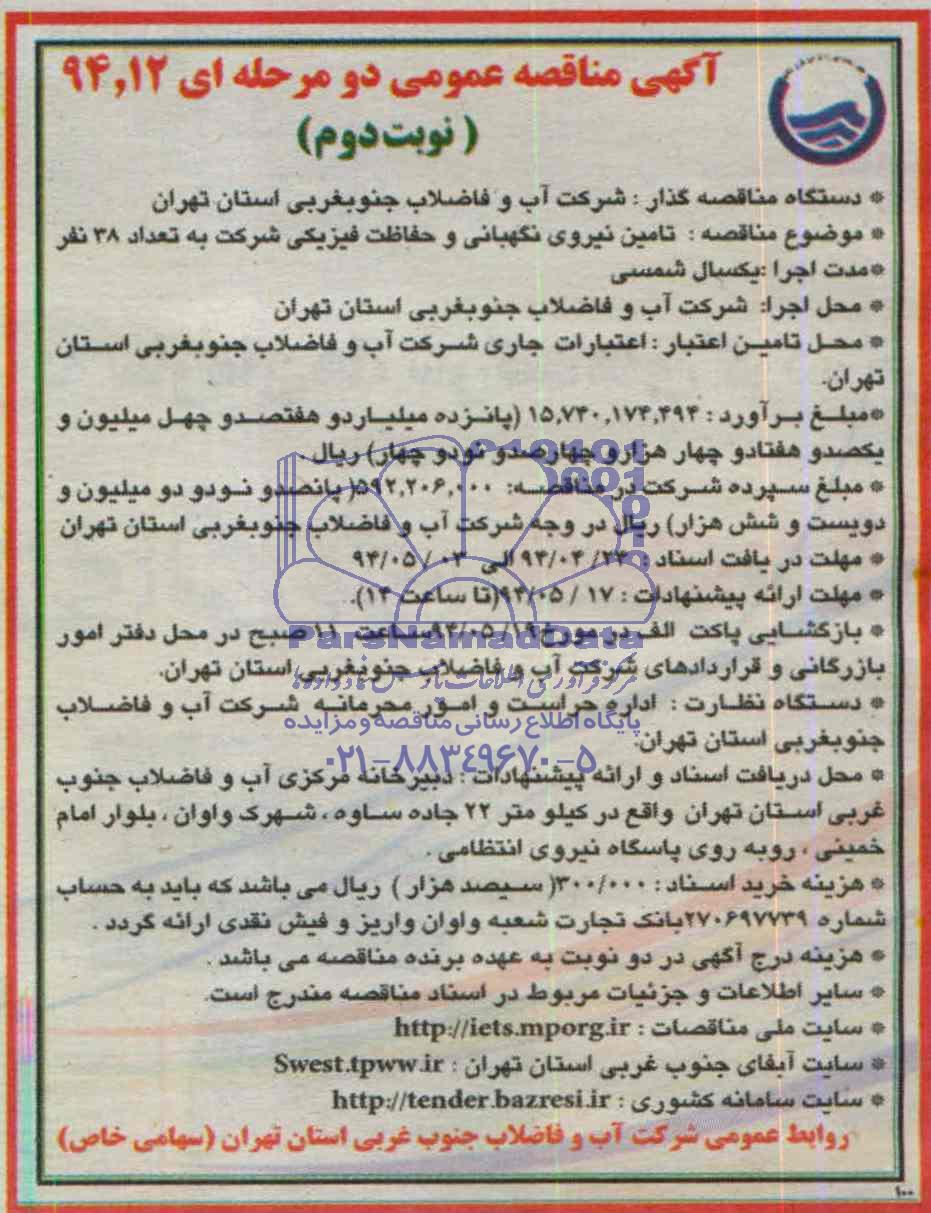 آگهی مناقصه عمومی دو مرحله ای ۹۴,۱۲
(نوبت دوم)
* دستگاه مناقصه گذار : شرکت آب و فاضلاب جنوبغربی استان تهران
* موضوع مناقصه : تامین نیروی نگهبانی و حفاظت فیزیکی شرکت به تعداد ۳۸ نفر
*مدت اجرا :یکسال شمسی
* محل اجرا: شرکت آب و فاضلاب جنوبغربی استان تهران
* محل تامین اعتبار : اعتبارات جاری شرکت آب و فاضلاب جنوبغربی استان
تهران.
*مبلغ برآورد : ۱۵,۷۴۰,۱۷۴,۴۹۴ (پانزده میلیاردو هفتصدو چهل میلیون و
یکصدو هفتادو چهار هزارو چهارصدو نودو چهار) ریال .
* مبلغ سپرده شرکت در مناقصه: ۵۹۲,۲۰۶,۰۰۰( پانصدو نودو دو میلیون و
دویست و شش هزار) ریال در وجه شرکت آب و فاضلاب جنوبغربی استان تهران
* مهلت در یافت اسناد : ۹۴/۰۴/۲۴ الی ۹۴/۰۵/۰۳
* مهلت ارائه پیشنهادات : ۹۴/۰۵/۱۷(تا ساعت ۱۴).
* بازگشایی پاکت الف در مورخ ۹۴/۰۵/۱۹ ساعت ۱۱ صبح در محل دفتر امور
بازرگانی و قراردادهای شرکت آب و فاضلاب جنوبغربی استان تهران.
* دستگاه نظارت : اداره حراست و امور محرمانه شرکت آب و فاضلاب
جنوبغربی استان تهران.
* محل دریافت اسناد و ارائه پیشنهادات : دبیرخانه مرکزی آب و فاضلاب جنوب
غربی استان تهران واقع در کیلو متر ۲۲ جاده ساوه ، شهرک واوان ، بلوار امام
خمینی ، روبه روی پاسگاه نیروی انتظامی .
* هزینه خرید اسناد : ۳۰۰/۰۰۰( سیصد هزار ) ریال می باشد که باید به حساب
شماره ۲۷۰۶۹۷۷۳۹بانک تجارت شعبه واوان واریز و فیش نقدی ارائه گردد .
* هزینه درج آگهی در دو نوبت به عهده برنده مناقصه می باشد .
* سایر اطلاعات و جزئیات مربوط در اسناد مناقصه مندرج است.
* سایت ملی مناقصات : http://iets.mporg.ir
* سایت آبفای جنوب غربی استان تهران : Swest.tpww.ir
* سایت سامانه کشوری : http://tender.bazresi.ir
روابط عمومی شرکت آب و فاضلاب جنوب غربی استان تهران (سهامی خاص)
۱۰۰
ParsNamadData
پایگاه اطلاع رسانی مناقصه و مزایده
۰۲۱-۸۸۳۴۹۶۷۰-۵